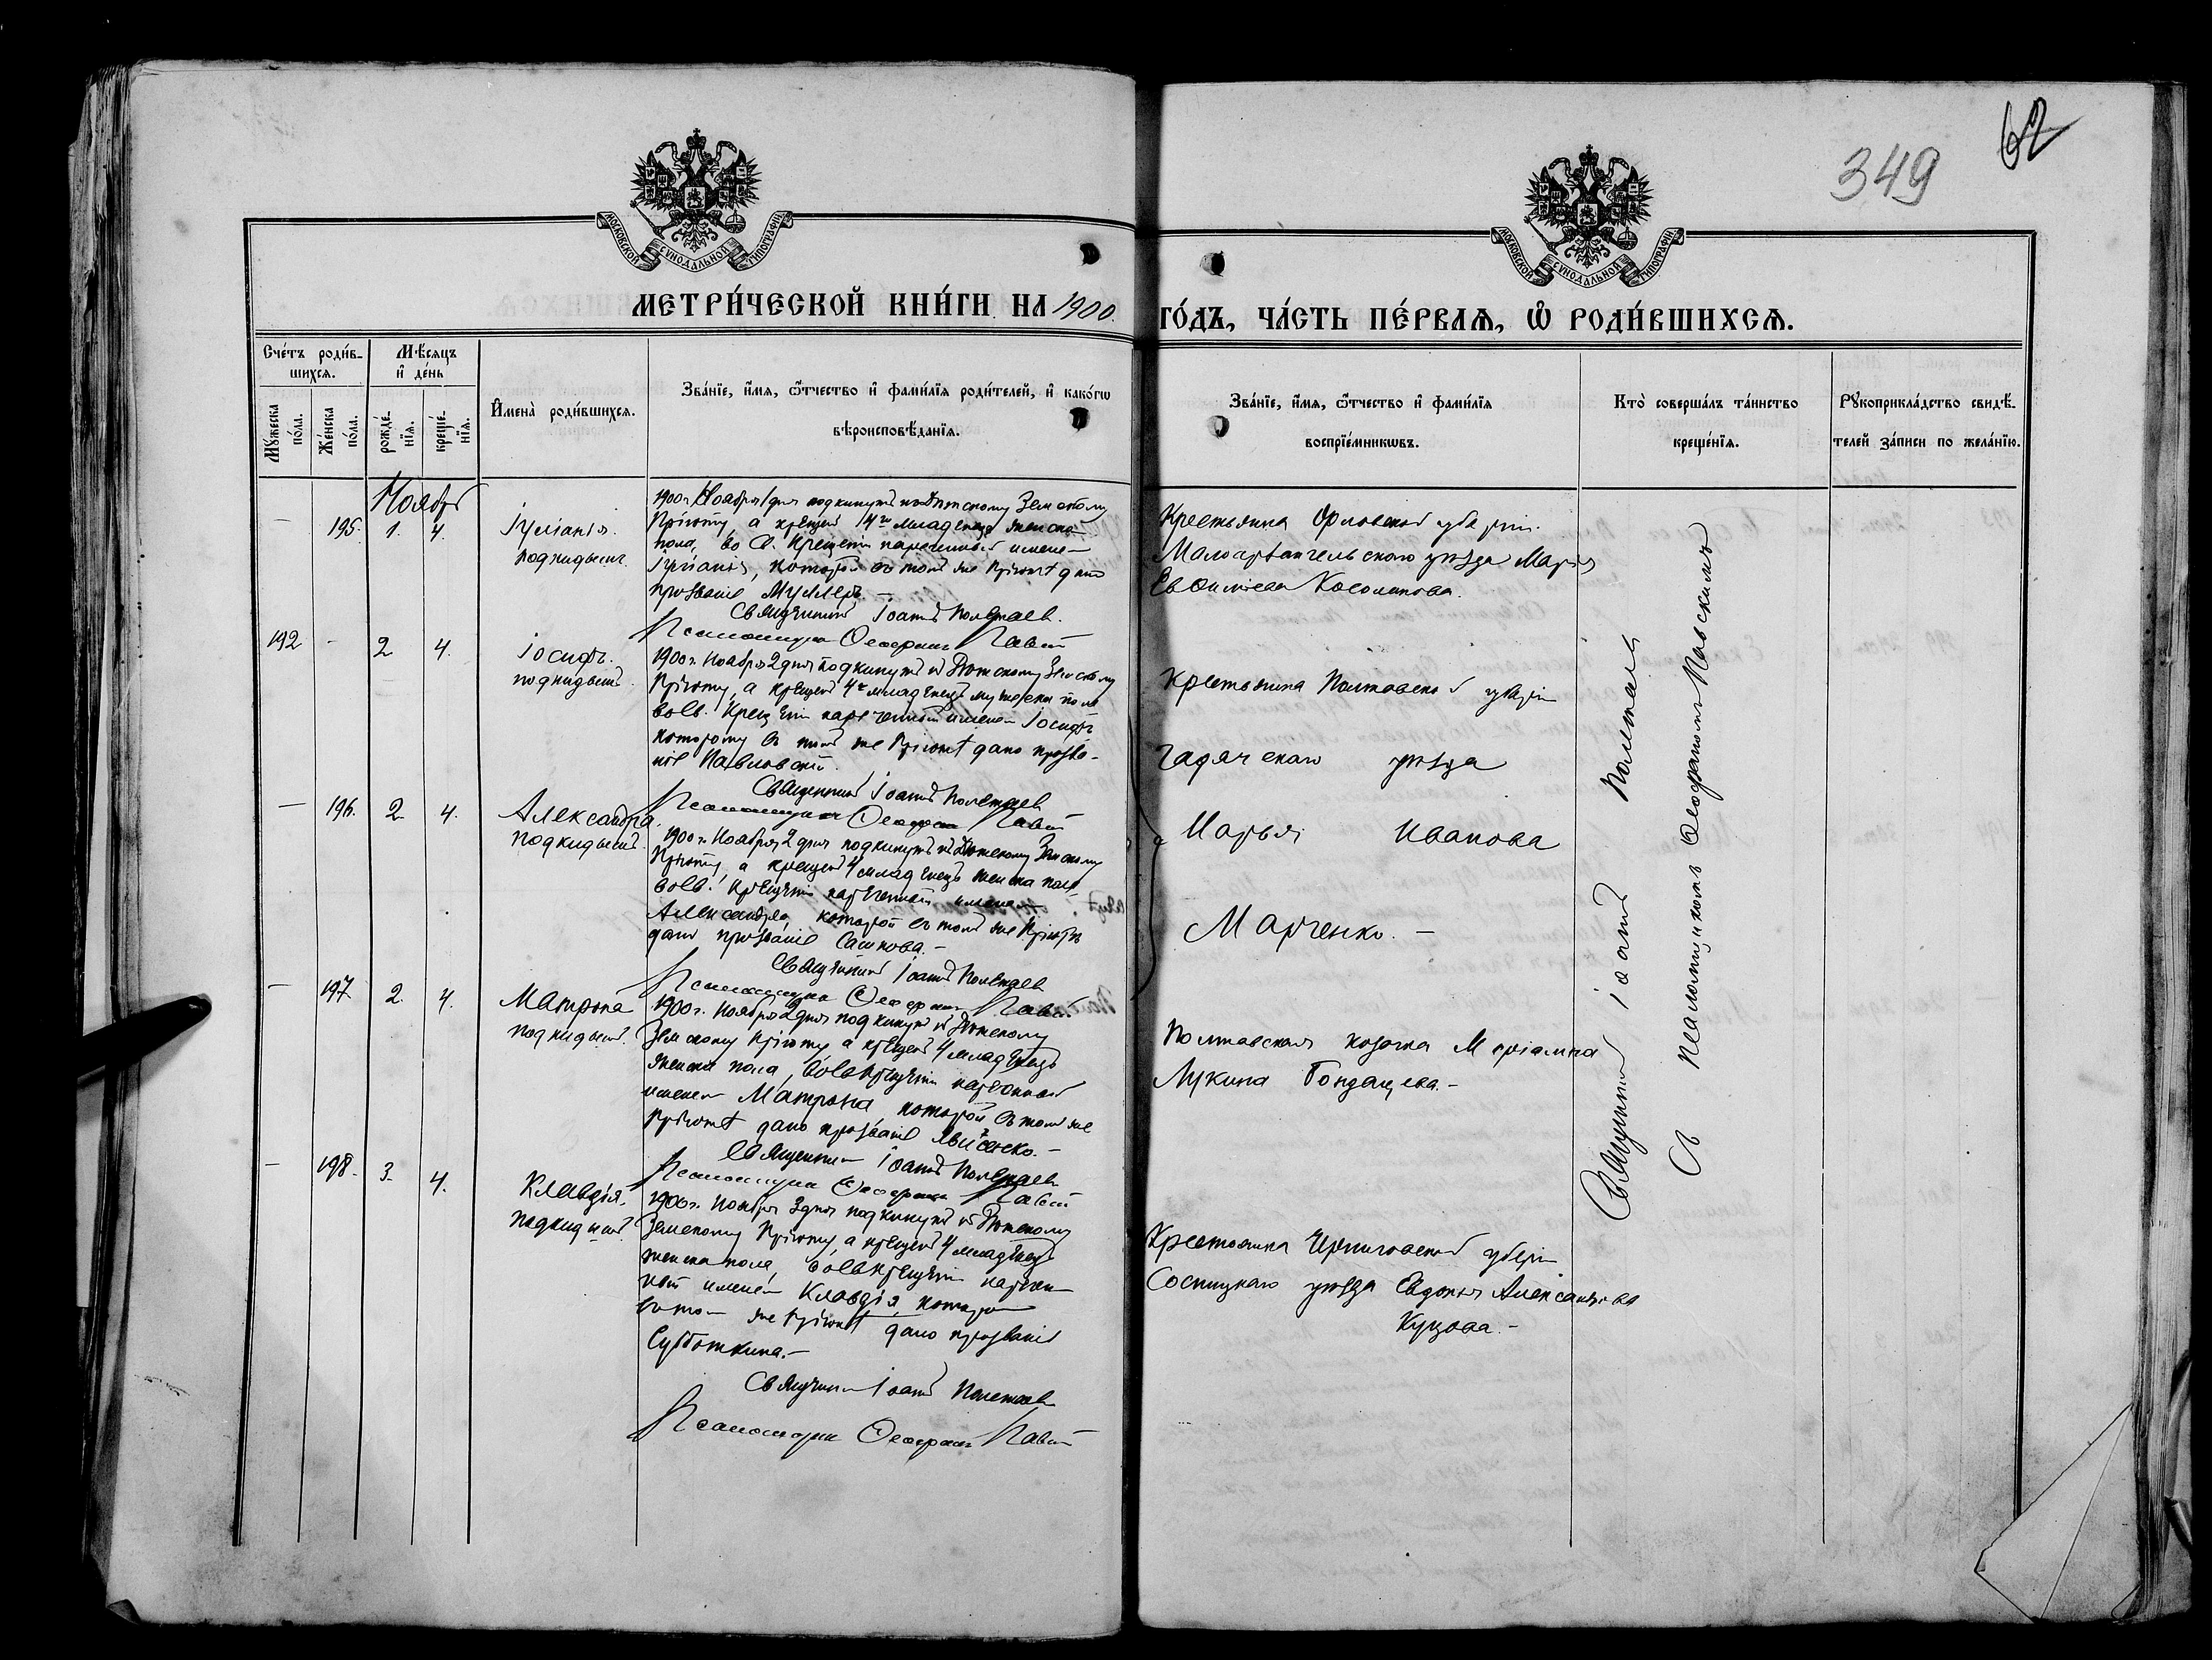 349
62
МОСКОВСКОЙ СѴНОДАЛЬНОЙ ТИПОГРАФІИ
МОСКОВСКОЙ СѴНОДАЛЬНОЙ ТИПОГРАФІИ
МЕТРИ́ЧЕСКОЙ КНИ́ГИ НА 1900.
ГО́ДЪ, ЧА́СТЬ ПЕ́РВАЯ, Ѽ РОДИ́ВШИХСѦ.
Сче́тъ роди́в-
шихсѧ.
Мꙋжеска по́ла.
Же́нска по́ла.
Мѣ́сѧцъ
и҆ де́нь
рожде́-нїѧ.
креще́-нїѧ.
И҆мена̀ роди́вшихсѧ.
Зва́нїе, и҆́мѧ, ѻ҆́тчество и҆ фами́лїѧ роди́телей, и҆ како́гѡ
вѣроисповѣ́данїѧ.
Зва́нїе, и҆́мѧ, ѻ҆́тчество и҆ фами́лїѧ
воспрїе́мникѡвъ.
Кто̀ соверша́лъ та́инство
креще́нїѧ.
Рꙋкоприкла́дство свидѣ́-
телей за́писи по жела́нїю.
Ноябрь
— 195. 1. 4.
Іуліанія.
подкидышъ.
1900 г. Ноября 1 дня подкинутъ къ Дѣтскому Земскому
Пріюту, а крещенъ 4го младенецъ женска
пола, во Св. Крещеніи нареченный именем
Іуліанія, которой въ томъ же Пріютѣ дано
прозваніе Мушлеръ. —
Священникъ Іоаннъ Полетаев.
Псаломщикъ Феофанъ Павскій
Крестьянка Орловской губерніи.
Малоархангельскаго уѣзда Марія
Евфиміева Косолапова.
192 - 2 4.
Іосифъ.
подкидышъ.
1900 г. Ноября 2 дня подкинутъ къ Дѣтскому Земскому
Пріюту, а крещенъ 4го младенецъ мужеска пола
во Св. Крещеніи нареченный именем Іосифъ
которому въ томъ же Пріютѣ дано прозва-
ніе Павловскій.
Священникъ Іоаннъ Полетаев
Псаломщикъ Феофанъ Павскій
Крестьянка Полтавской губерніи
Гадячскаго уѣзда
Марья Иванова
Марченко. —
— 196. 2. 4.
Александра.
подкидышъ.
1900 г. Ноября 2 дня подкинутъ къ Дѣтскому Земскому
Пріюту, а крещенъ 4 младенецъ женска пола,
во Св. Крещеніи нареченный именем
Александра, которой въ томъ же Пріютѣ
дано прозваніе Сашкова. —
Священникъ Іоаннъ Полетаев
Псаломщикъ Феофанъ Павскій
— 197 2. 4.
Матрона
подкидышъ.
1900 г. Ноября 2 дня подкинутъ къ Дѣтскому
Земскому Пріюту а крещенъ 4 младенецъ
женска пола, во Св Крещеніи нареченный
именем Матрона, которой въ томъ же
Пріютѣ дано прозваніе
Священникъ Іоаннъ Полетаев
Псаломщикъ Феофанъ Павскій
Полтавская козачка Маріамна
Лукина
— 198. 3. 4.
Клавдія.
подкидышъ.
1900 г. Ноября 3 дня подкинутъ къ Дѣтскому
Земскому Пріюту, а крещенъ 4 младенецъ
женска пола, во Св Крещеніи наречен-
ный именем Клавдія, которой
въ том же Пріютѣ дано прозваніе
Субботкина. —
Священникъ Іоаннъ Полетаев
Псаломщикъ Феофанъ Павскій
Крестьянка Черниговской губерніи
Сосницкаго уѣзда Евдокія Александрова
Куцова. —
Священникъ Іоаннъ Полетаевъ
Съ псаломщикомъ Феофаномъ Павскимъ